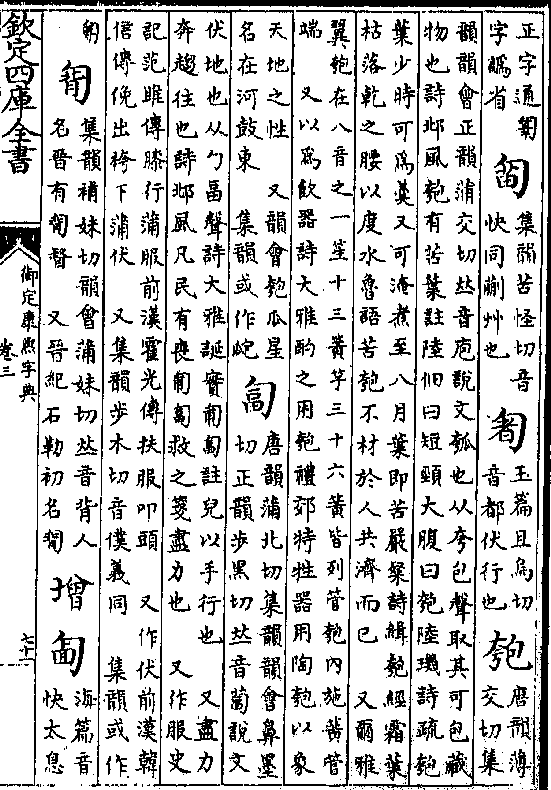 正字通匊
字譌省
集韻苦怪切音
快同蒯艸也
玉篇且烏切
音都伏行也
匏
唐韻薄
交切集
韻韻會正韻蒲交切𠀤音庖說文瓠也从夸包聲取其可包藏
物也詩邶風匏有苦葉註陸佃曰短頸大腹曰匏陸璣詩疏匏
葉少時可為羹又可淹煮至八月葉即苦嚴粲詩緝匏經霜葉
枯落乾之腰以度水魯語苦匏不材於人共濟而已　又爾雅
翼匏在八音之一笙十三簧竽三十六簧皆列管匏內施簧管
端　又以為飲器詩大雅酌之用匏禮郊特牲器用陶匏以象
天地之性　又韻會匏瓜星
名在河鼓東　集韻或作
匐
唐韻蒲北切集韻韻會鼻墨
切正韻步黑切𠀤音蔔說文
伏地也从勹畐聲詩大雅誕實匍匐註兒以手行也　又盡力
奔趨往也詩邶風凡民有喪匍匐救之箋盡力也　又作服史
記范雎傳膝行蒲服前漢霍光傳扶服叩頭　又作伏前漢韓
信傳俛出袴下蒲伏　又集韻步木切音僕義同　集韻或作
集韻補妹切韻會蒲妹切𠀤音背人
名晉有督　又晉紀石勒初名
增
海篇音
快太息
欽定四庫全書
御定康熙字典
卷三
七十一